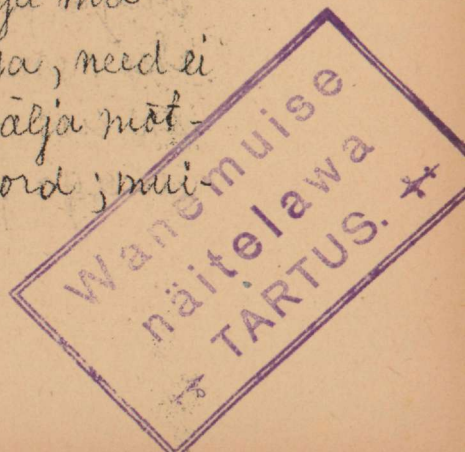 ja, need ei
älja mõt-
ord; mui-
Wanemuise
näitelawa
TARTUS.